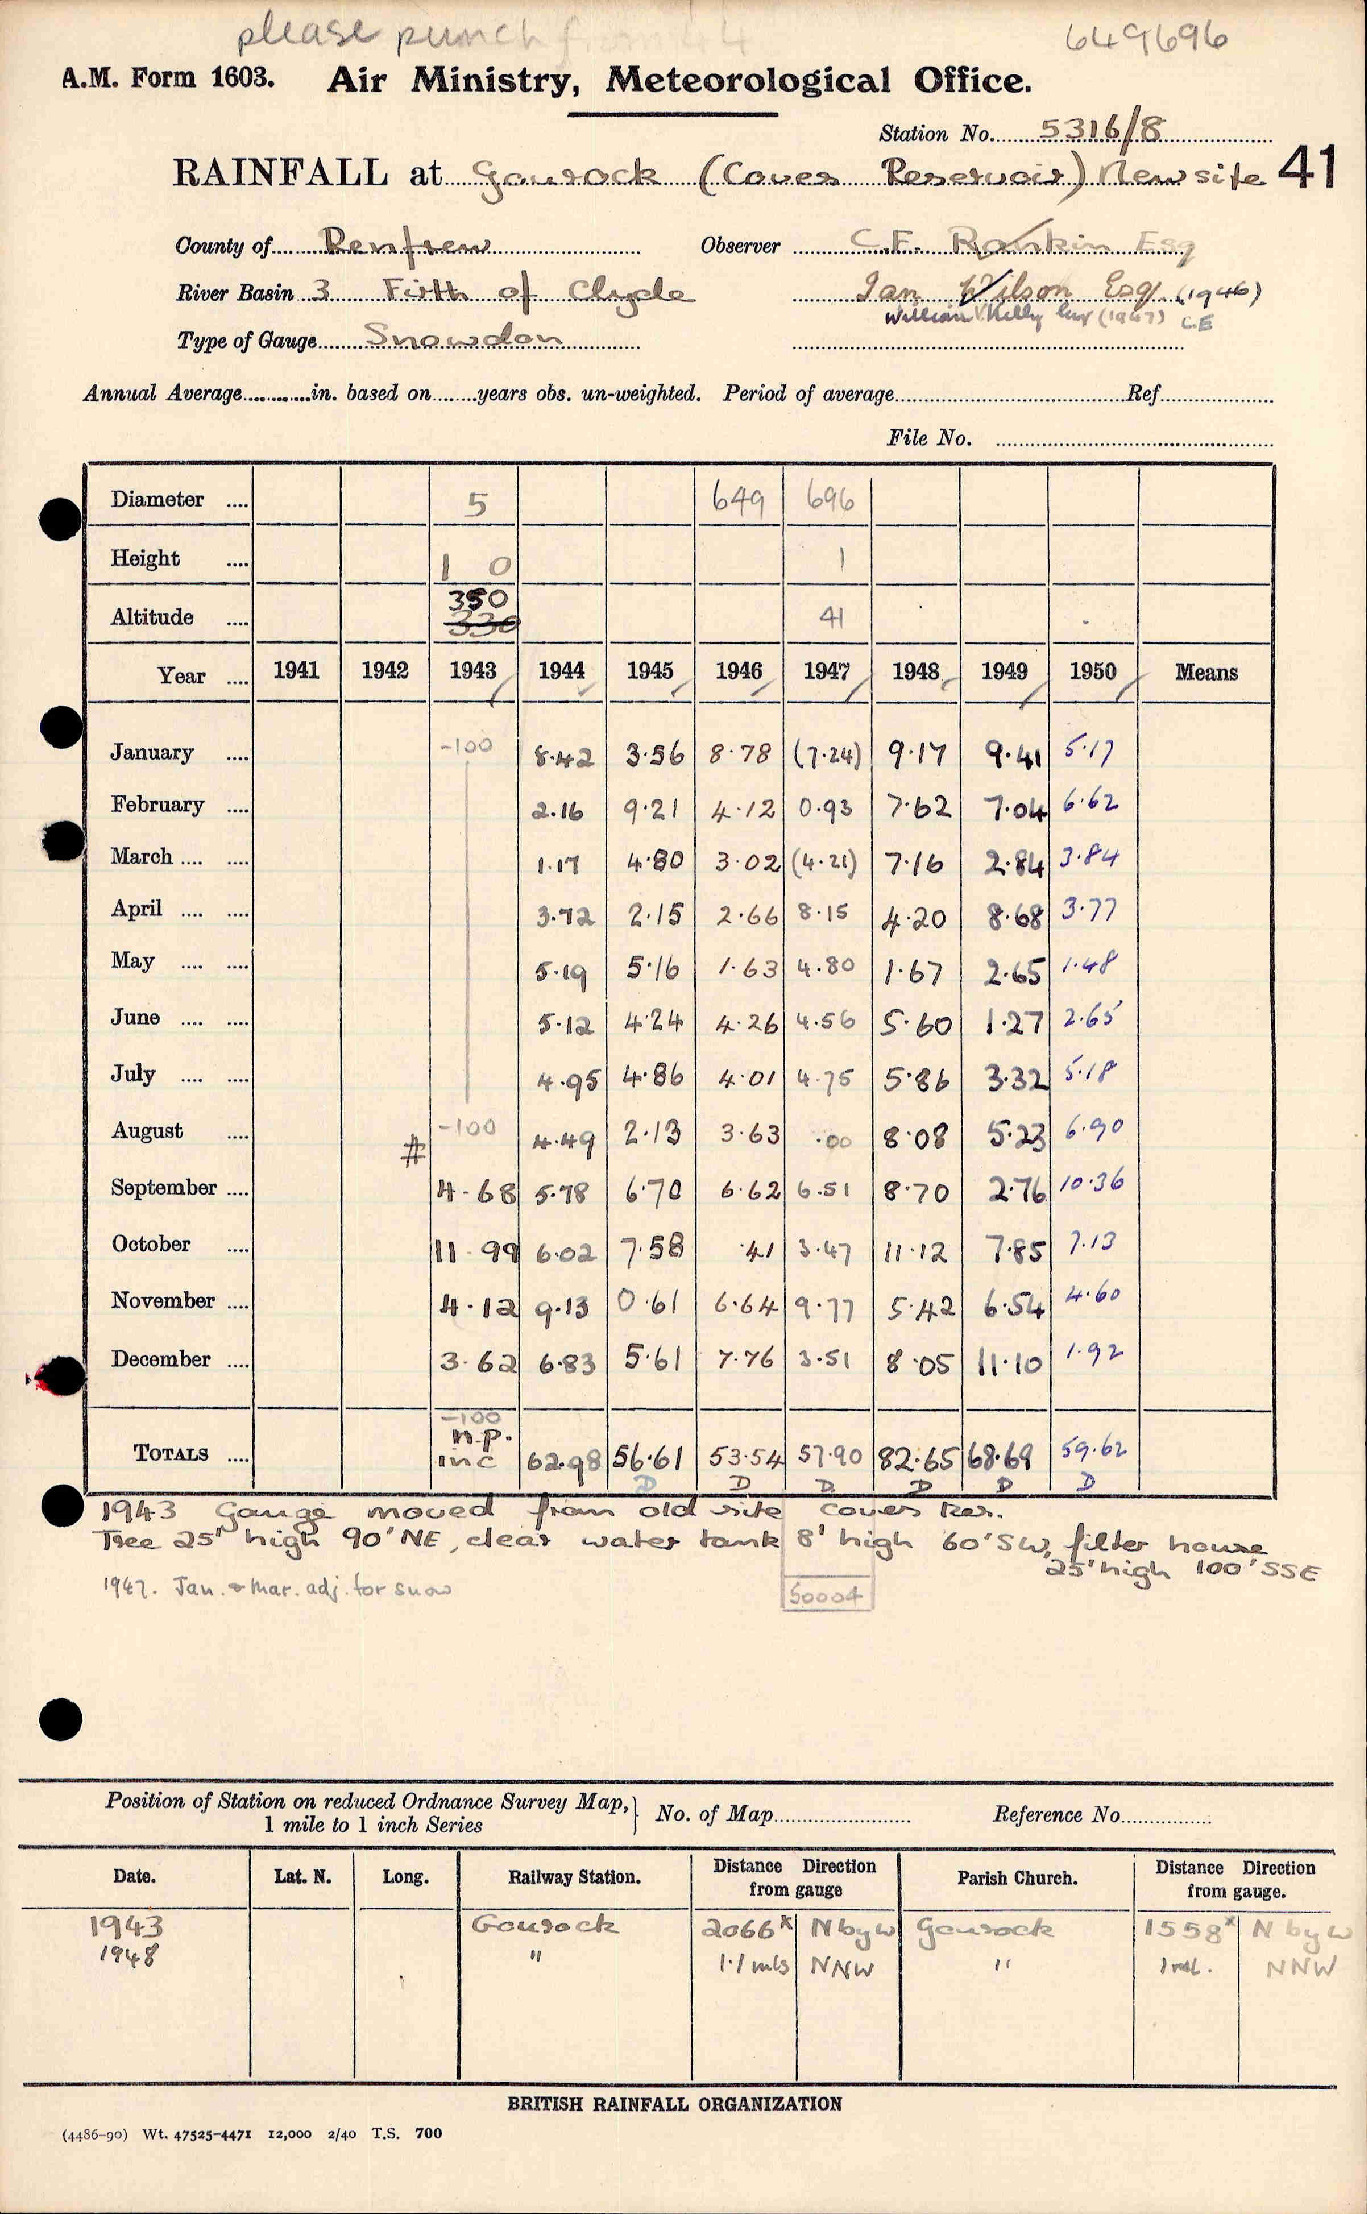 please punch from 44
649696
A.M. Form 1603. Air Ministry, Meteorological Office.
Station No. 5316/8
RAINFALL at Gourock (Coves Reservoir) New site 41
County of Renfrew Observer C.F. Rankin Esq
River Basin 3 Firth of Clyde Ian Wilson Esq. (1946)
William Kelly Esq (1947) C.E
Type of Gauge Snowdon
Annual Average in. based on years obs. un-weighted. Period of average Ref
File No.
Diameter 5 649 696
Height 1 0 1
Altitude 350 330 41
Year 1941 1942 1943 1944 1945 1946 1947 1948 1949 1950 Means
January -100 8.42 3.56 8.78 (7.24) 9.17 9.41 5.17
February 2.16 9.21 4.12 0.93 7.62 7.04 6.62
March 1.17 4.80 3.02 (4.21) 7.16 2.84 3.84
April 3.72 2.15 2.66 8.15 4.20 8.68 3.77
May 5.19 5.16 1.63 4.80 1.67 2.65 1.48
June 5.12 4.24 4.26 4.56 5.60 1.27 2.65
July 4.95 4.86 4.01 4.75 5.86 3.32 5.18
August # -100 4.49 2.13 3.63 .00 8.08 5.23 6.90
September 4.68 5.78 6.70 6.62 6.51 8.70 2.76 10.36
October 11.99 6.02 7.58 .41 3.47 11.12 7.85 7.13
November 4.12 9.13 0.61 6.64 9.77 5.42 6.54 4.60
December 3.62 6.83 5.61 7.76 3.51 8.05 11.10 1.92
-100
n.p.
TOTALS inc 62.98 56.61 53.54 57.90 82.65 68.69 59.62
D D D D D D
1943 Gauge moved from old site Coves Res.
Tree 25' high 90' NE, clear water tank 8' high 60' SW, filter house
25' high 100' SSE
1947. Jan. & Mar. adj. for snow
50004
Position of Station on reduced Ordnance Survey Map, 1 mile to 1 inch Series } No. of Map Reference No.
Date. Lat. N. Long. Railway Station. Distance Direction from gauge Parish Church. Distance Direction from gauge.
1943 Gourock 2066x N by W Gourock 1558x N by W
1948 " 1.1 mls NNW " 1 ml. NNW
BRITISH RAINFALL ORGANIZATION
(4486-90) Wt. 47525-4471 12,000 2/40 T.S. 700